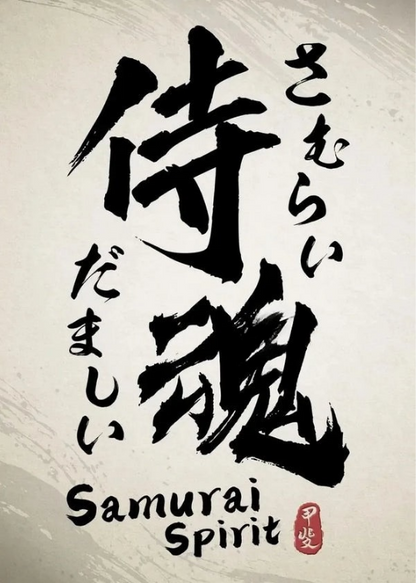 さむらい
侍魂
だましい
Samurai
Spirit
甲斐